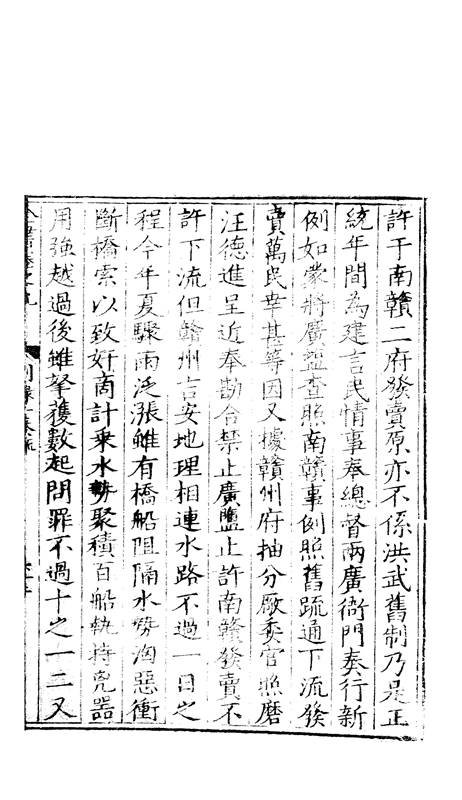 許于南贛二府發賣原亦不係洪武舊制乃是正
統年間為建言民情事奉總督兩廣衙門奏行新
例如蒙將廣鹽查照南贛事例照舊疏通下流發
賣萬民幸甚等因又據贛州府抽分厰委官照磨
汪德進呈近奉勘合禁止廣鹽止許南贛發賣不
許下流但贛州吉安地理相連水路不過一日之
程今年夏驟雨泛漲雖有橋船阻隔水勢洶惡衝
斷橋索以致奸商計乗水勢聚積百船執持兇器
用強越過後雖拏獲數起問罪不過十之一二又
全書卷之九
別錄一奏疏